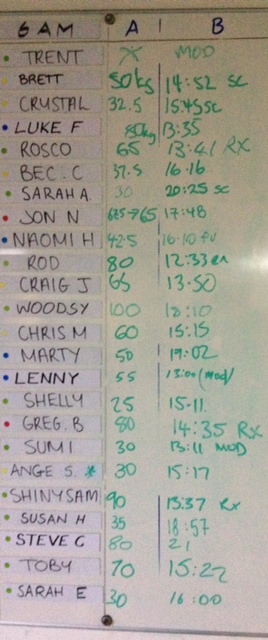 6AM A B
TRENT X MOD
BRETT 50kg 14:52 SC
CRYSTAL 32.5 15:45 SC
LUKE F 80kg 13:35
ROSCO 65 13:41 RX
BEC. C 37.5 16.16
SARAH A. 30 20:25 SC
JON N 65 17:48
NAOMI H 42.5 16.10
ROD 80 12:33
CRAIG J 65 13.50
WOODSY 100 18:10
CHRIS M 60 15:15
MARTY 50 17:02
LENNY 55 13:00 (mod)
SHELLY 25 15-11
GREG. B 80 14:35 RX
SUMI 30 13:11 MOD
ANGE S. * 30 15:17
SHINYSAM 90 13:37 Rx
SUSAN H 35 18:57
STEVE C 80 21
TOBY 70 15:22
SARAH E 30 16:00